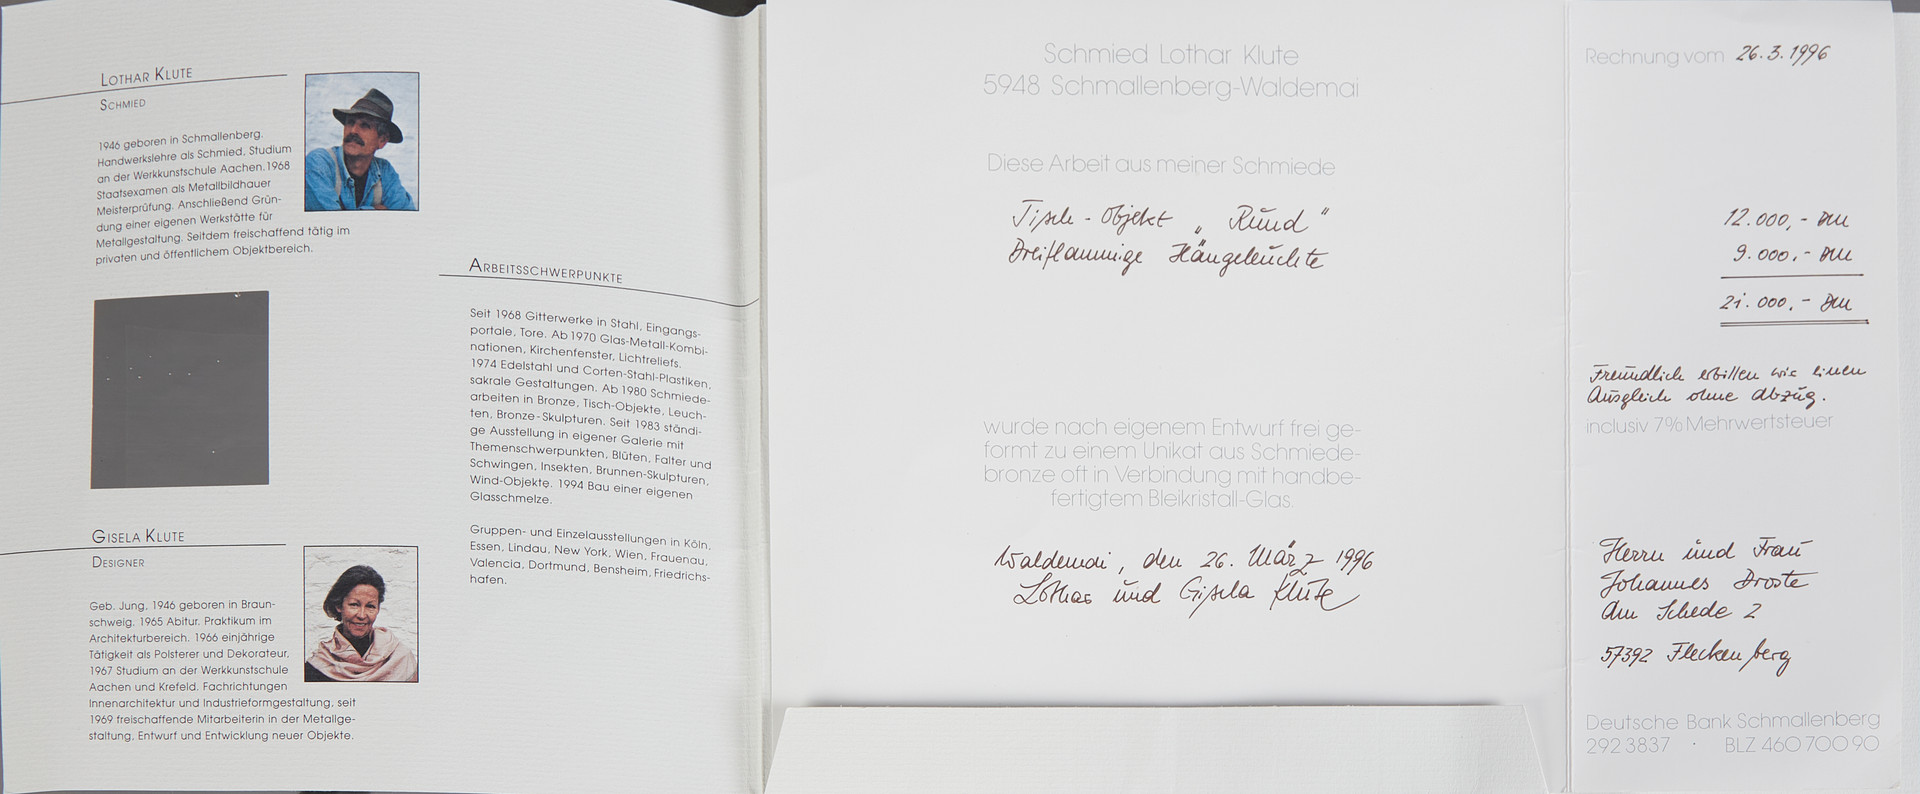 LOTHAR KLUTE
SCHMIED
1946 geboren in Schmallenberg.
Handwerkslehre als Schmied, Studium
an der Werkkunstschule Aachen. 1968
Staatsexamen als Metallbildhauer
Meisterprüfung. Anschließend Grün-
dung einer eigenen Werkstätte für
Metallgestaltung. Seitdem freischaffend tätig im
privaten und öffentlichem Objektbereich.
GISELA KLUTE
DESIGNER
Geb. Jung, 1946 geboren in Braun-
schweig. 1965 Abitur. Praktikum im
Architekturbereich. 1966 einjährige
Tätigkeit als Polsterer und Dekorateur.
1967 Studium an der Werkkunstschule
Aachen und Krefeld. Fachrichtungen
Innenarchitektur und Industrieformgestaltung, seit
1969 freischaffende Mitarbeiterin in der Metallge-
staltung, Entwurf und Entwicklung neuer Objekte.
ARBEITSSCHWERPUNKTE
Seit 1968 Gitterwerke in Stahl, Eingangs-
portale, Tore. Ab 1970 Glas-Metall-Kombi-
nationen, Kirchenfenster, Lichtreliefs.
1974 Edelstahl und Corten-Stahl-Plastiken,
sakrale Gestaltungen. Ab 1980 Schmiede-
arbeiten in Bronze, Tisch-Objekte, Leuch-
ten, Bronze-Skulpturen. Seit 1983 ständi-
ge Ausstellung in eigener Galerie mit
Themenschwerpunkten, Blüten, Falter und
Schwingen, Insekten, Brunnen-Skulpturen,
Wind-Objekte. 1994 Bau einer eigenen
Glasschmelze.
Gruppen- und Einzelausstellungen in Köln,
Essen, Lindau, New York, Wien, Frauenau,
Valencia, Dortmund, Bensheim, Friedrichs-
hafen.
Schmied Lothar Klute
5948 Schmallenberg-Waldemai
Diese Arbeit aus meiner Schmiede
Tisch - Objekt „ Rund "
Dreiflammige Hängeleuchte
wurde nach eigenem Entwurf frei ge-
formt zu einem Unikat aus Schmiede-
bronze oft in Verbindung mit handbe-
fertigtem Bleikristall-Glas.
Waldemai, den 26. März 1996
Lothar und Gisela Klute
Rechnung vom 26.3.1996
12.000,- DM
9.000,- DM
21.000,- DM
Freundlich erbitten wir einen
Ausgleich ohne Abzug.
inclusiv 7% Mehrwertsteuer
Herrn und Frau
Johannes Droste
Am Schede 2
57392 Fleckenberg
Deutsche Bank Schmallenberg
292 3837 · BLZ 460 700 90